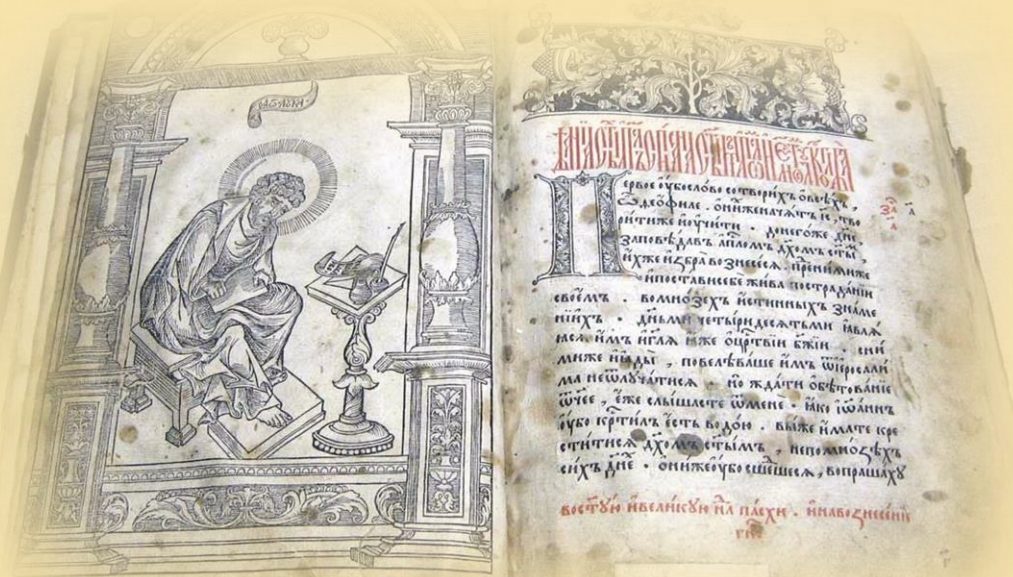 Первое ѹбо слово сотворихъ ѡ всѣхъ,
ѽ деѡфиле. ѡ нихже начатъ іс, тво
ритиже и ѹчити. донегоже дн҃е,
заповѣдавъ апⷭломъ дх҃омъ ст҃ы,
ихже избра вознесеся. предними же
ипостави себе жива пострадании
своемъ. вомнозехъ истинныхъ знаме
ниихъ. дньми четыридесятьми явля
яся имъ и гл҃я яже оцрⷭтвіи бж҃іи. сни
миже ияды, повелѣваше имъ ѿ иерⷭали
ма неѿлучатися. но ждати обѣтованіе
ѿчее, еже слышасте ѿ мене. яко іѡаннъ
ѹбо крⷭтилъ есть водою. выже имате кре
ститися дх҃омъ ст҃ымъ, непомнозѣхъ
сихъ дн҃е. онижеѹбо сшешеся, вопрашаху
востую ивеликую нл҃ пасхи. инавознесение
гн҃е